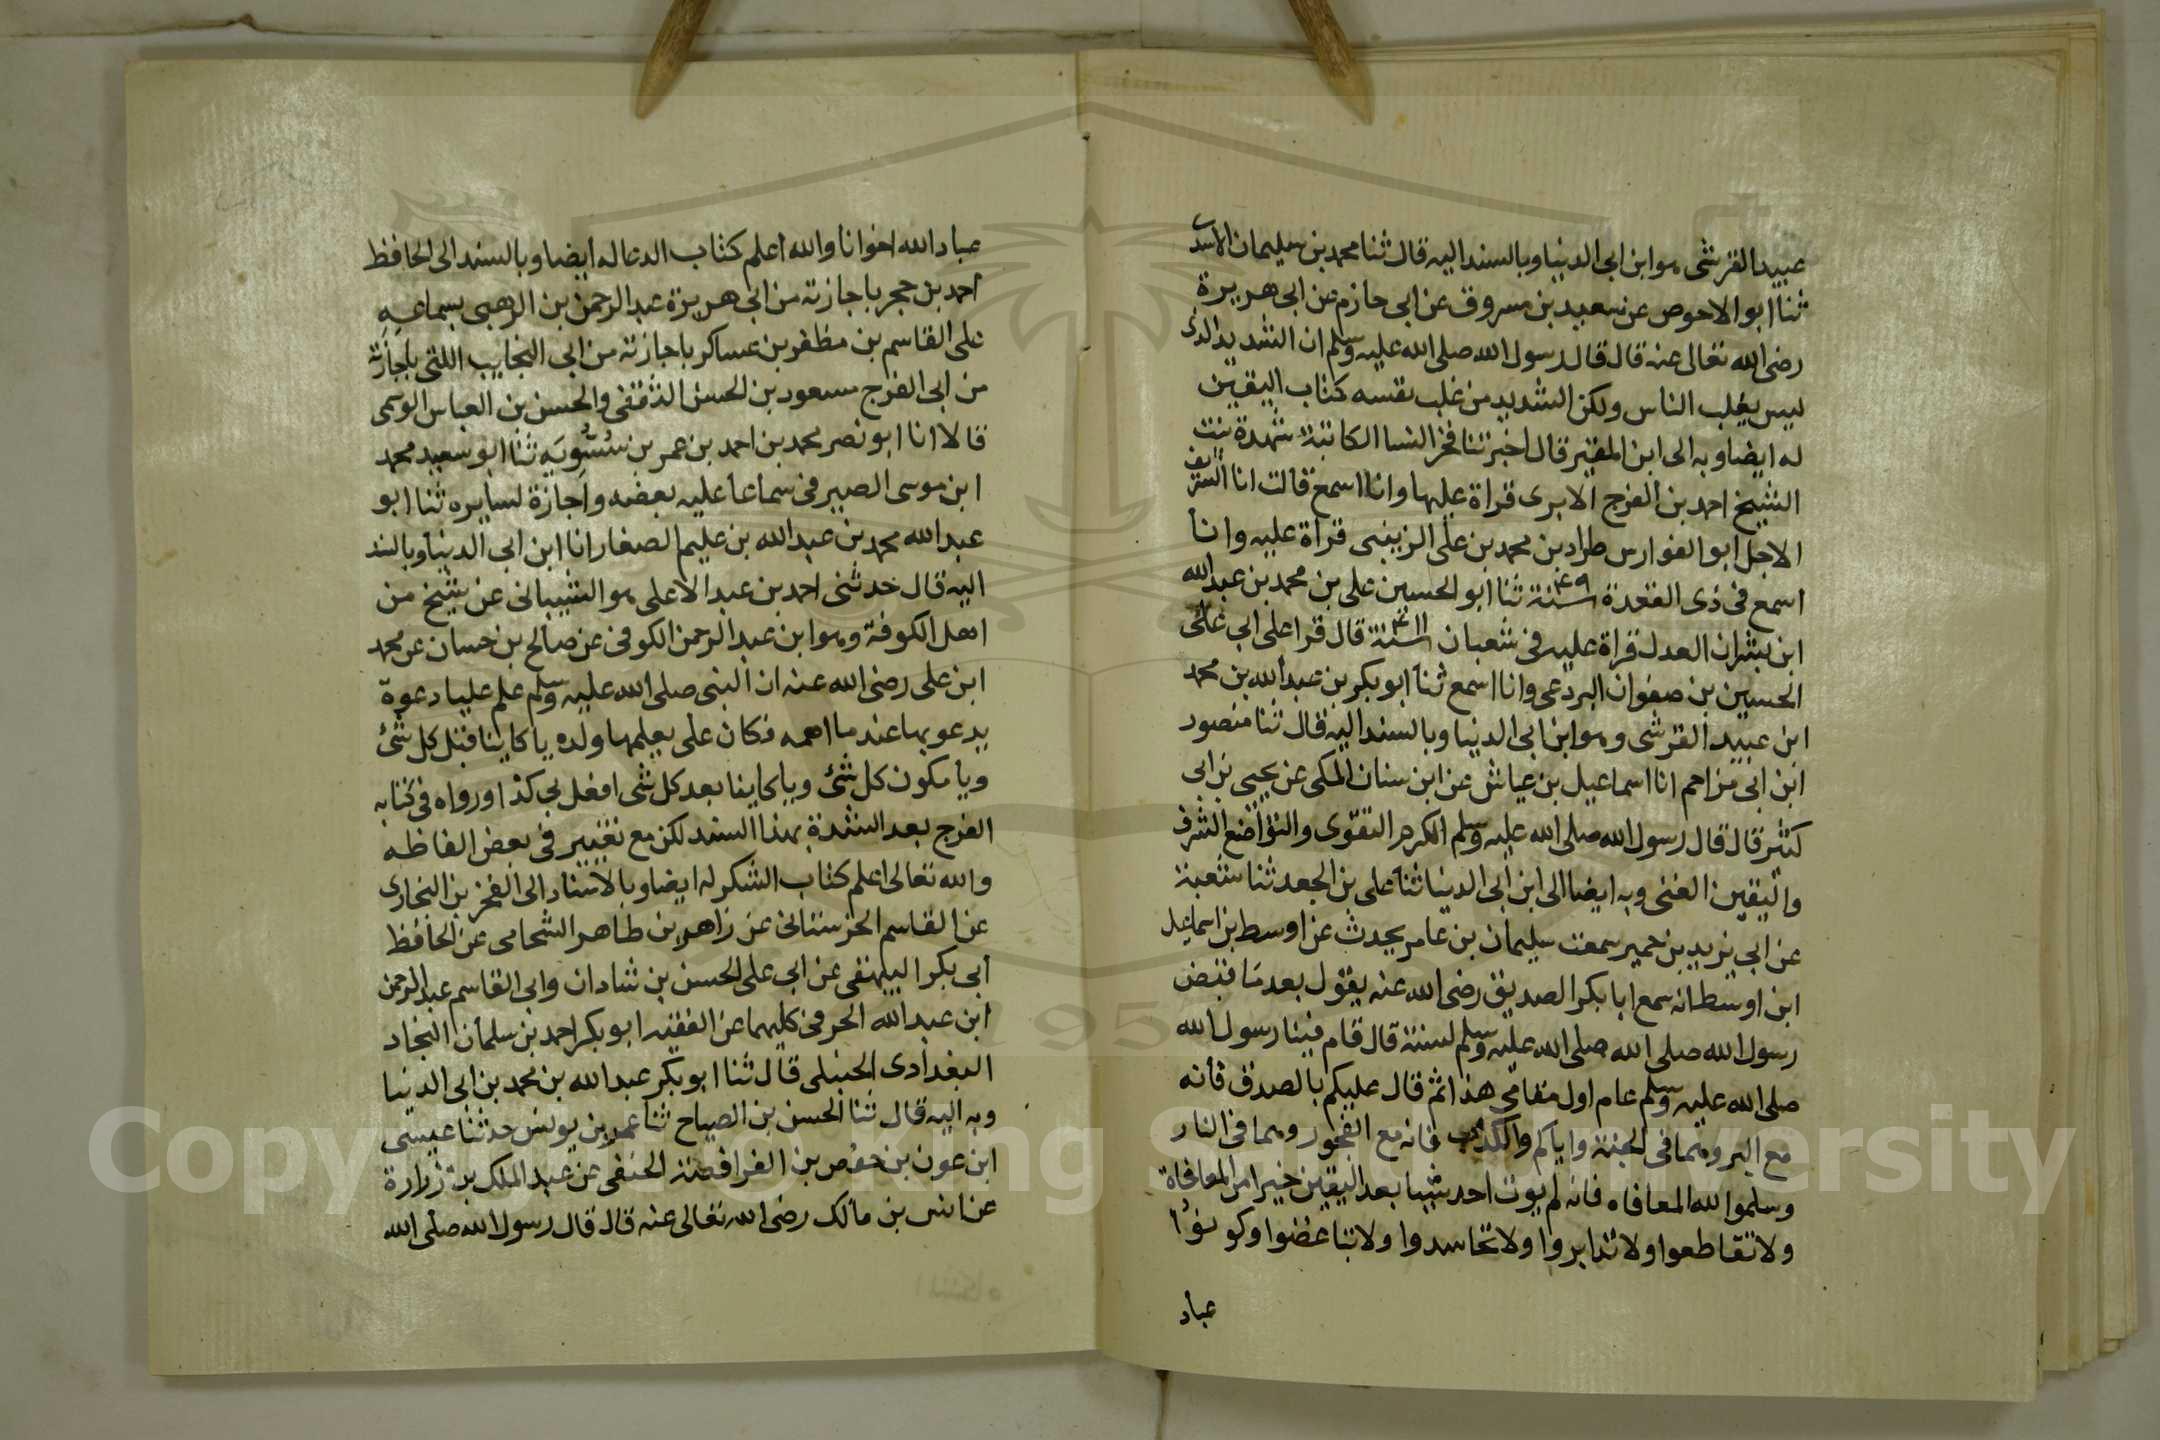 عبيد القرشى هو ابن ابى الدنيا وبالسند اليه قال ثنا محمد بن سليمان الاسدى
ثنا ابو الاحوص عن سعيد بن مسروق عن ابى حازم عن ابى هريرة
رضى الله تعالى عنه قال قال رسول الله صلى الله عليه وسلم ان الشديد الذى
ليس يغلب الناس ولكن الشديد من غلب نفسه كتاب اليقين
له ايضا وبه الى ابن المقير قال اخبرتنا فخر النسا الكاتبة شهدة بنت
الشيخ احمد بن الفرج الابرى قراة عليها وانا اسمع قالت انا الشريف
الاجل ابو الفوارس طراد بن محمد بن على الزينبى قراة عليه وانا
اسمع فى ذى القعدة سنة ٤٩ ثنا ابو الحسين على بن محمد بن عبد الله
ابن بشران العدل قراة عليه فى شعبان سنة ٤١١ قال قرا على ابى على
الحسين بن صفوان البردعى وانا اسمع ثنا ابو بكر بن عبد الله بن محمد
ابن عبيد القرشى وهو ابن ابى الدنيا وبالسند اليه قال ثنا منصور
ابن ابى مزاحم انا اسماعيل بن عياش عن ابن سنان المكى عن يحيى بن ابى
كثير قال قال رسول الله صلى الله عليه وسلم الكرم التقوى والتواضع الشرف
واليقين الغنى وبه ايضا الى ابن ابى الدنيا ثنا على بن الجعد ثنا شعبة
عن ابى يزيد بن خمير سمعت سليمان بن عامر يحدث عن اوسط بن اسماعيل
ابن اوسط انه سمع ابا بكر الصديق رضى الله عنه يقول بعد ما قبض
رسول الله صلى الله صلى الله عليه وسلم لسنة قال قام فينا رسول الله
صلى الله عليه وسلم عام اول مقامى هذا ثم قال عليكم بالصدق فانه
مع البر وهما فى الجنة واياكم والكذب فانه مع الفجور وهما فى النار
وسلموا لله المعافاه فانه لم يوت احد شيا بعد اليقين خيرا من المعافاة
ولا تقاطعوا ولا تدابروا ولا تحاسدوا ولا تباغضوا وكونوا
عباد
عباد الله اخوانا والله اعلم كتاب الدعا له ايضا وبالسند الى الحافظ
احمد بن حجر باجازته من ابى هريرة عبد الرحمن بن الذهبى بسماعه
على القاسم بن مظفر بن عساكر باجازته من ابى النجايب اللتى باجازة
من ابى الفرج مسعود بن الحسن الثقفى والحسن بن العباس الرستمى
قالا انا ابو نصر محمد بن احمد بن عمر بن سسويه ثنا ابو سعيد محمد
ابن موسى الصيرفى سماعا عليه بعضه واجازة لسايره ثنا ابو
عبد الله محمد بن عبد الله بن عليم الصفار انا ابن ابى الدنيا وبالسند
اليه قال حدثنى احمد بن عبد الاعلى هو الشيبانى عن شيخ من
اهل الكوفة وهو ابن عبد الرحمن الكوفى عن صالح بن حسان عن محمد
ابن على رضى الله عنه ان النبى صلى الله عليه وسلم علم عليا دعوة
يدعو بها عند ما اهمه فكان على يعلمها ولده يا كاينا قبل كل شئ
ويا مكون كل شئ ويا كاينا بعد كل شى افعل بى كذا ورواه فى كتابه
الفرج بعد الشدة بهذا السند لكن مع تغيير فى بعض الفاظه
والله تعالى اعلم كتاب الشكر له ايضا وبالاسناد الى الفخر بن البخارى
عن القاسم الحرستانى عن زاهر بن طاهر الشحامى عن الحافظ
ابى بكر البيهقى عن ابى على الحسن بن شادان وابى القاسم عبد الرحمن
ابن عبد الله الحرفى كليهما عن الفقيه ابو بكر احمد بن سلمان النجاد
البغدادى الحنبلى قال ثنا ابو بكر عبد الله بن محمد بن ابى الدنيا
وبه اليه قال ثنا الحسن بن الصباح ثنا عمر بن يونس حدثنا عيسى
ابن عون بن حفص بن الفرافصة الحنفى عن عبد الملك بن زرارة
عن انس بن مالك رضى الله تعالى عنه قال قال رسول الله صلى الله
Copyright © King Saud University
1957